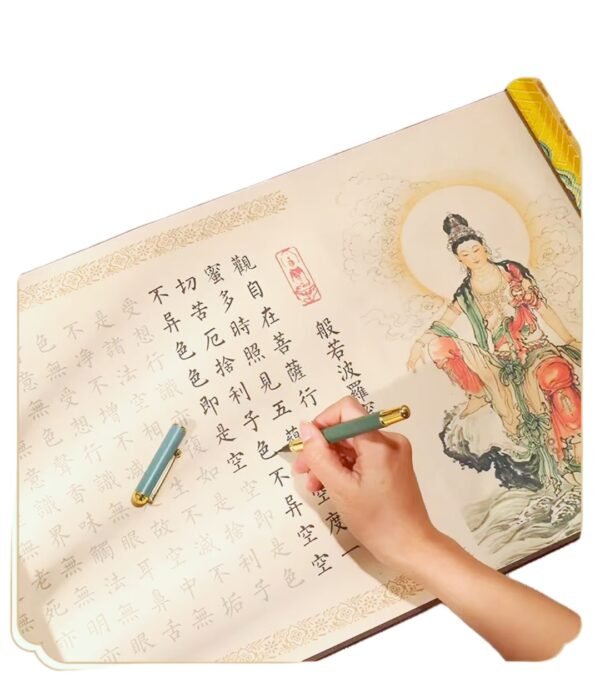 般若波羅
觀自在菩薩行
蜜多時照見五蘊空度一
切苦厄捨利子色不异空空
不异色色即是空空即是色
受想行識亦復如是捨利子
是諸法空相不生不滅不垢
不淨不增不減故空中無
色無受想行識無眼耳鼻舌
意無色聲香味觸法無眼
意識界無無明亦
老死亦